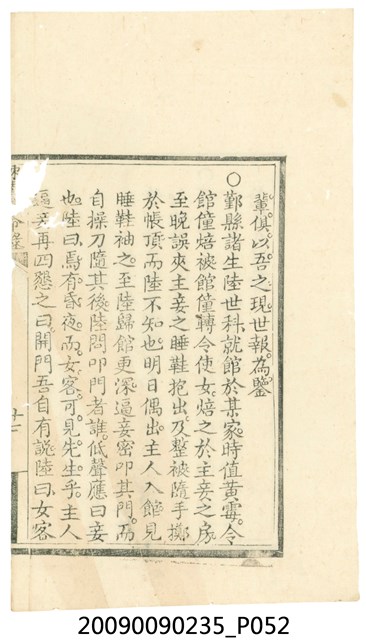 輩俱以吾之現世報為鑒
○鄞縣諸生陸世科就館於某家時值黃霉令
館僮焙被館僮轉令使女焙之於主妾之房
至晚誤夾主妾之睡鞋抱出及整被隨手擲
於帳頂而陸不知也明日偶出主人入館見
睡鞋袖之至陸歸館更深逼妾密叩其門而
自操刀隨其後陸問叩門者誰低聲應曰妾
也陸曰焉有昏夜而女客可見先生乎主人
逼妾再四懇之曰開門吾自有說陸曰女客
20090090235_P052